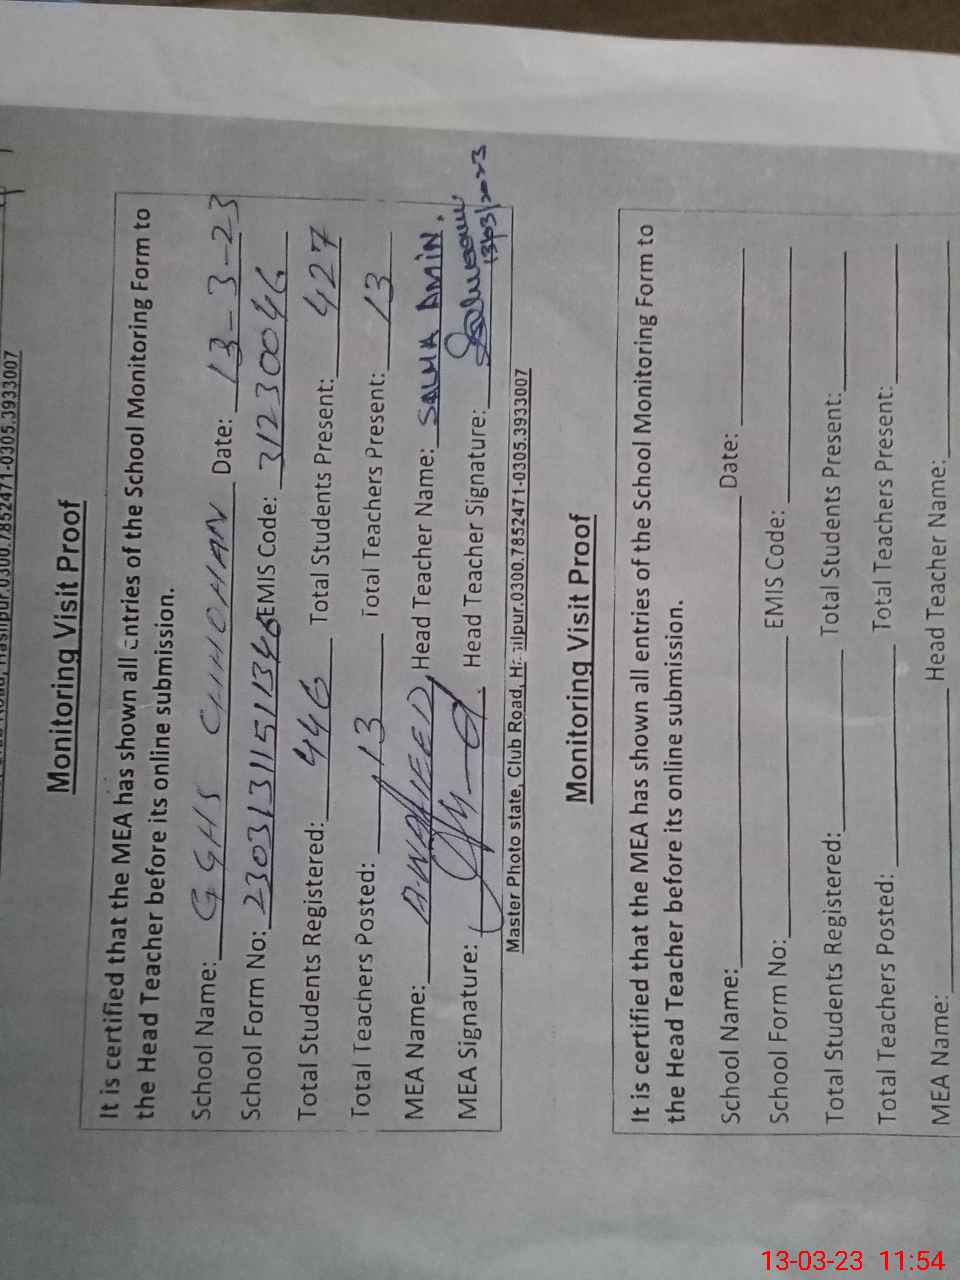 0300.7852471-0305.3933007
Monitoring Visit Proof
It is certified that the MEA has shown all entries of the School Monitoring Form to
the Head Teacher before its online submission.
School Name: GGHS CHHOHAN Date: 13-3-23
School Form No: 23031311511346 EMIS Code: 31230046
Total Students Registered: 446 Total Students Present: 427
Total Teachers Posted: 13 Total Teachers Present: 13
MEA Name: A.WAHEED Head Teacher Name: SALMA AMIN.
MEA Signature: Head Teacher Signature:
13/03/2023
Master Photo state, Club Road, Hasilpur.0300.7852471-0305.3933007
Monitoring Visit Proof
It is certified that the MEA has shown all entries of the School Monitoring Form to
the Head Teacher before its online submission.
School Name: Date:
School Form No: EMIS Code:
Total Students Registered: Total Students Present:
Total Teachers Posted: Total Teachers Present:
MEA Name: Head Teacher Name:
13-03-23 11:54